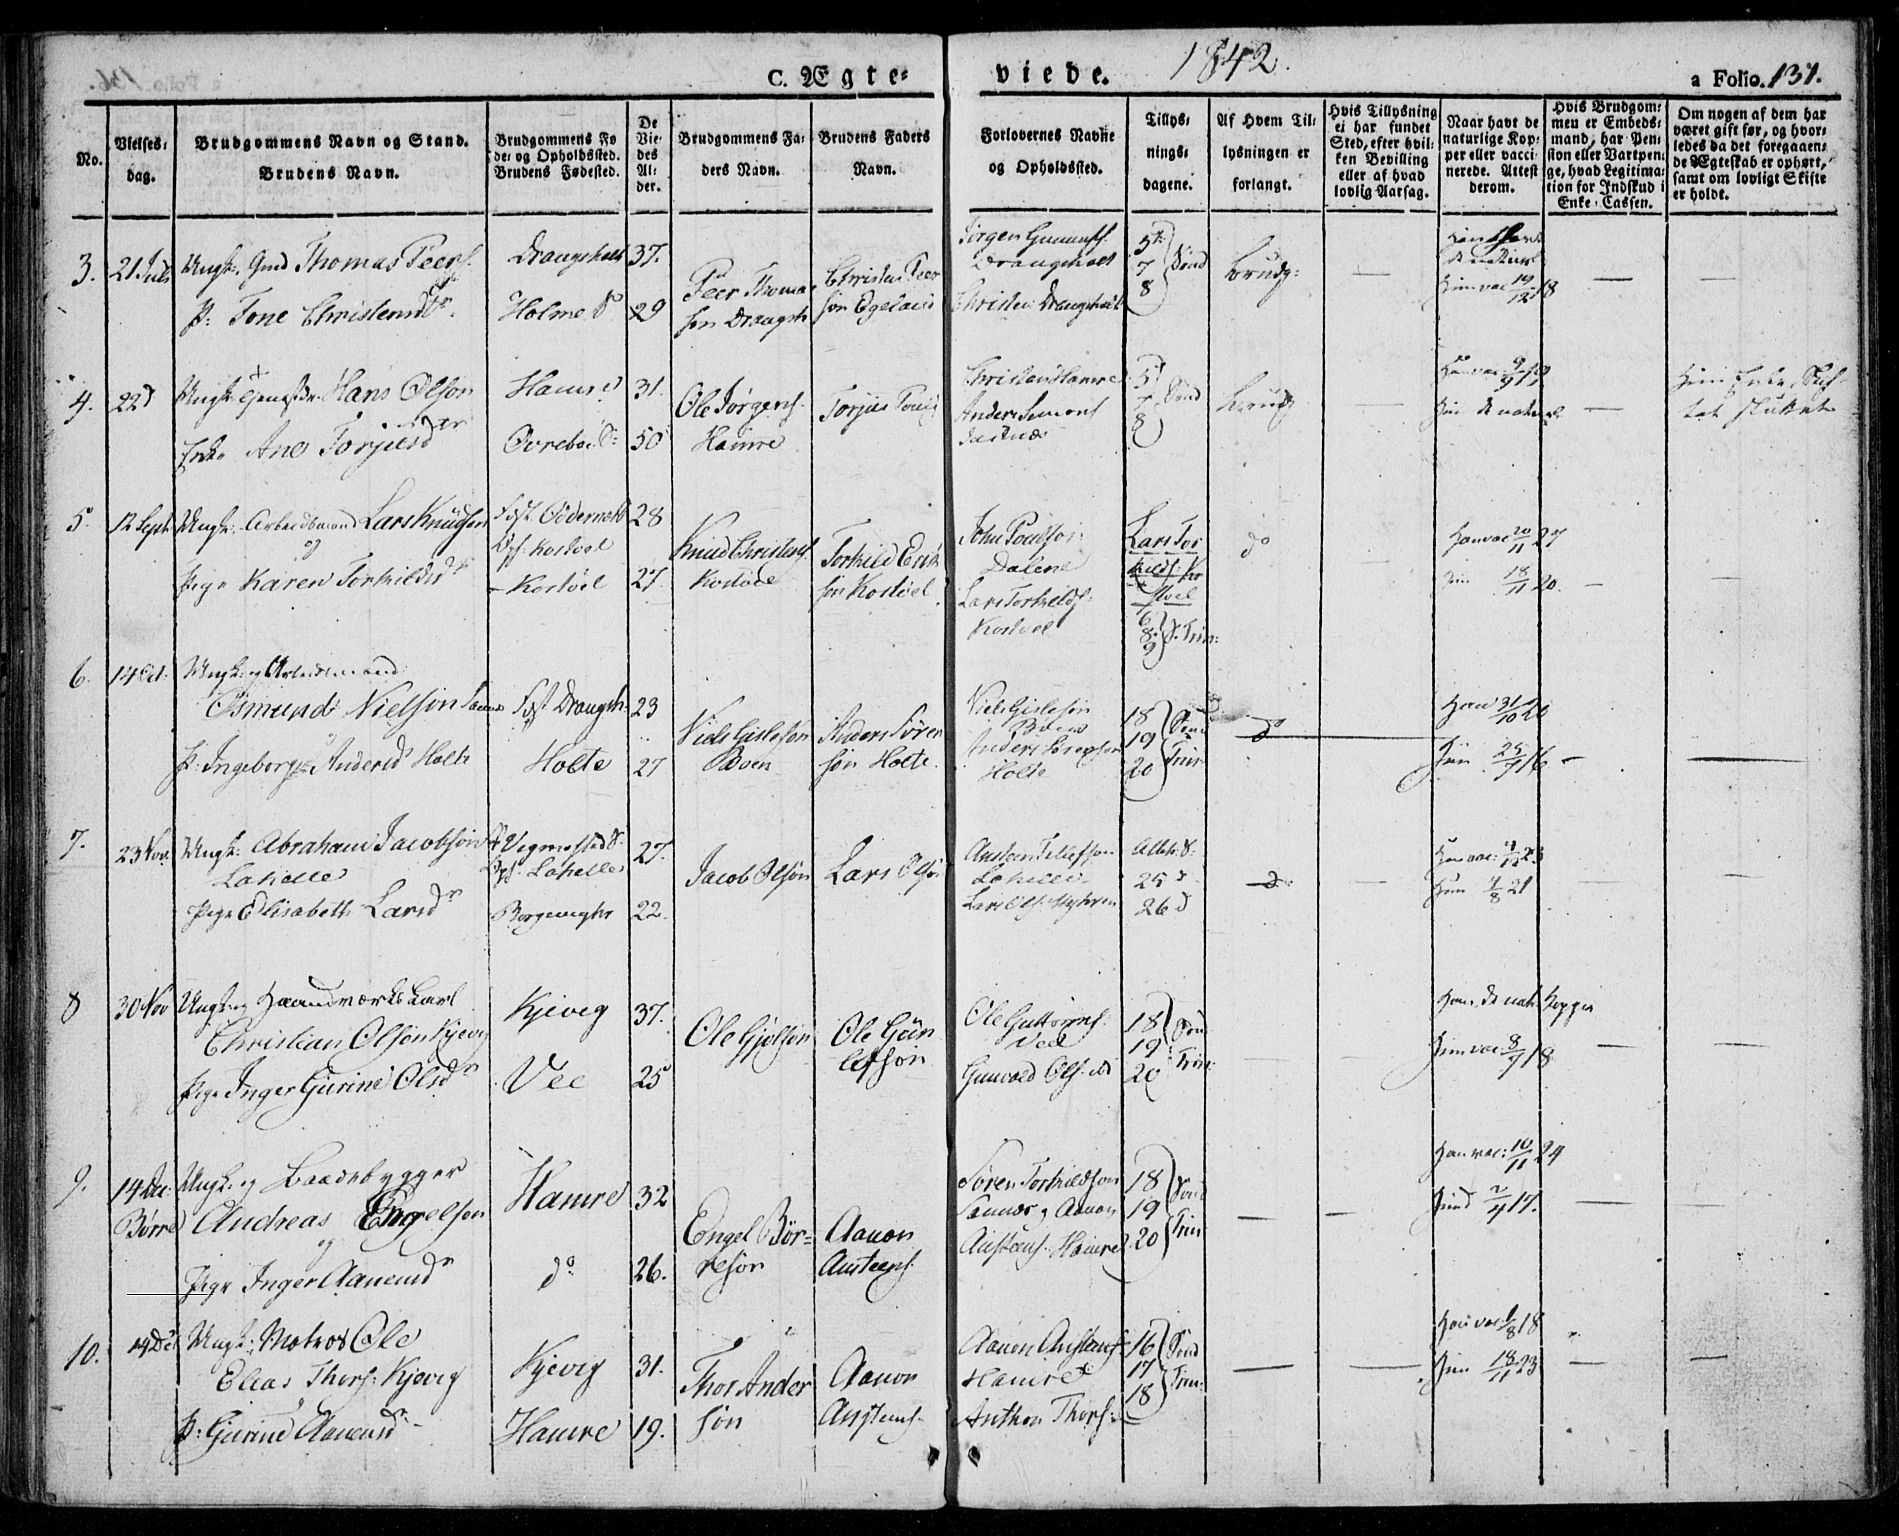 C. Ægte-
viede. 1842.
a Folio. 131.
No.
Vielses-
dag.
Brudgommens Navn og Stand.
Brudens Navn.
Brudgommens Fø
de- og Opholdssted.
Brudens Fødested.
De
Vie-
des
Al-
der.
Brudgommens Fa-
ders Navn.
Brudens Faders
Navn.
Forlovernes Navne
og Opholdssted.
Tillys-
nings-
dagene.
Af Hvem Til-
lysningen er
forlangt.
Hvis Tillysning
ei har fundet
Sted, efter hvil-
ken Bevilling
eller af hvad
lovlig Aarsag.
Naar havt de
naturlige Kop-
per eller vacci-
nerede. Attest
derom.
Hvis Brudgom-
men er Embeds-
mand, har Pen-
sion eller Vartpen-
ge, hvad Legitima-
tion for Indskud i
Enke-Cassen.
Om nogen af dem har
været gift før, og hvor-
ledes da det foregaaen-
de Ægteskab er ophørt,
samt om lovligt Skifte
er holdt.
3. 21 Juli Ungk. Gmd Thomas Peers.
P: Tone Christensdr.
Draugsholt 37.
Holme S 29
Peer Thoma
søn Draugsh
Christen Peer
søn Egeland
Jørgen Gunnufs.
Draugsholt
Christen Draugsholt
5te
7
8 Sønd
Brudg:
4. 22d Ungk. Tjenestdr. Hans Olson
Enke Ane Torjusdr
Hamre 31.
Øvrebøe S: 50
Ole Jørgens.
Hamre
Torjus
Christen Hamre
Anders Simons
5
7
8 Sønd
Brudg
5. 12 Sept. Ungk: Arbeidsmand Lars Knudsen
og
Pige Karen Torkildsdr
Føst. Oddernæs 28
Ops. Kostøel
- Kostøel 27.
Knud Christens.
Kostøel
Torkild Erik
søn Kostøel
John Poulsøn
Dalene
Lars Torkilds.
Kostøel
Lars Tor
kilds. Ko
støel
6
8.
9 S. Trin:
do
Han vac 20/11 27
Hun 18/11 20.
6. 14 Oct. Ungk. og Arbeidsmand
Osmund Nielsøn
P. Ingeborg Andersd Holte
Føst Draugsh. 23
Holte 27
Niels Gislesøn
Boen
Anders Søren
søn Holte.
Niels Gislesøn
Boen
Anders Sørensøn
Holte
18
19
20 Sønd
Trin
do
Han 31/10 20
Hun 25/7 16
7. 23 Nov. Ungk. Abraham Jacobsøn
Lahelle
Pige Elisabeth Larsdr
Vegmosted S. 27.
Ops. Lahelle
22.
Jacob Olsøn
Lars Olsøn
Austeen Tellefsøn
Lahelle
25d
26d
do
Hun 4/8 21
8 30 Nov Ungk. og Haandværks Karl
Christian Olsøn Kjevig
Pige Inger Gurine Olsdr
Kjevig 37.
Vee 25
Ole Gjølsøn
Ole Gun
lefsøn
Ole Guttorms.
Vee
Gunvald Ols.
18
19
20 Sønd
Trin:
Han de nat. Kopper
Hun vac. 8/7 18
9. 14 Dec. Ungk. og Baadebygger
Børre Andreas Engelsøn
og
Pige Inger Aanensdr
Hamre 32
do 26.
Engel Bør=
resøn
Aanon
Austeens.
Søren Torkildsøn
og Aanon
Austeens. Hamre
18
19
20 Sønd
Trin
Han vac: 10/11 24
Hun 2/4 17.
10. 14 Dec Ungk. Matros Ole
Elias Thors. Kjevig
P: Gurine Aanensdr
Kjevig 31.
Hamre 19.
Thor Ander
søn
Aanon
Austeens.
Aanon Austeens.
Hamre
Anthon Thors:
16
17
18 Sønd
Trin:
Han vac. 1/8 18
Hun 18/11 23